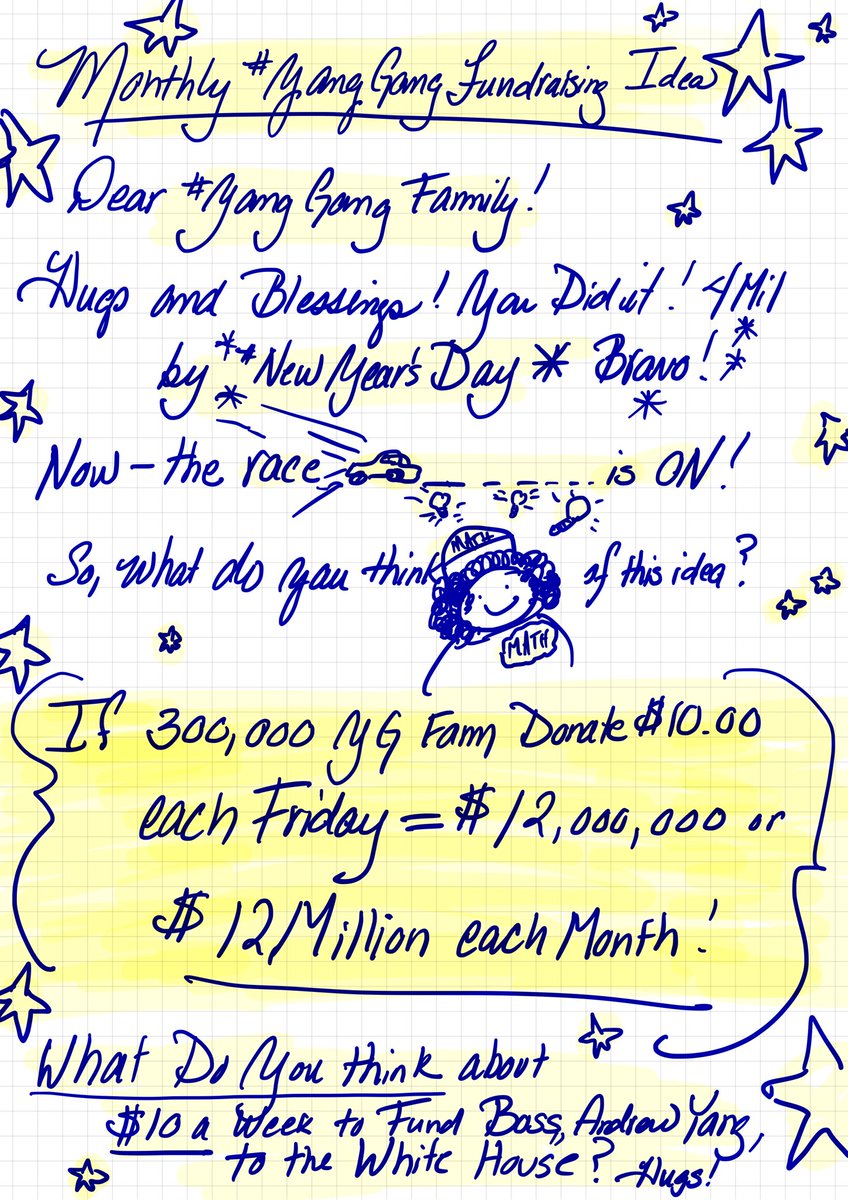 Monthly #Yang Gang Fundraising Idea
Dear #Yang Gang Family!
Hugs and Blessings! You Did it! 4Mil
by *#New Year's Day * Bravo!
Now - the race is ON!
So, what do you think of this idea?
MATH
MATH
If 300,000 YG Fam Donate $10.00
each Friday = $12,000,000 or
$12Million each Month!
What Do You think about
$10 a Week to Fund Boss, Andrew Yang,
to the White House? Hugs!